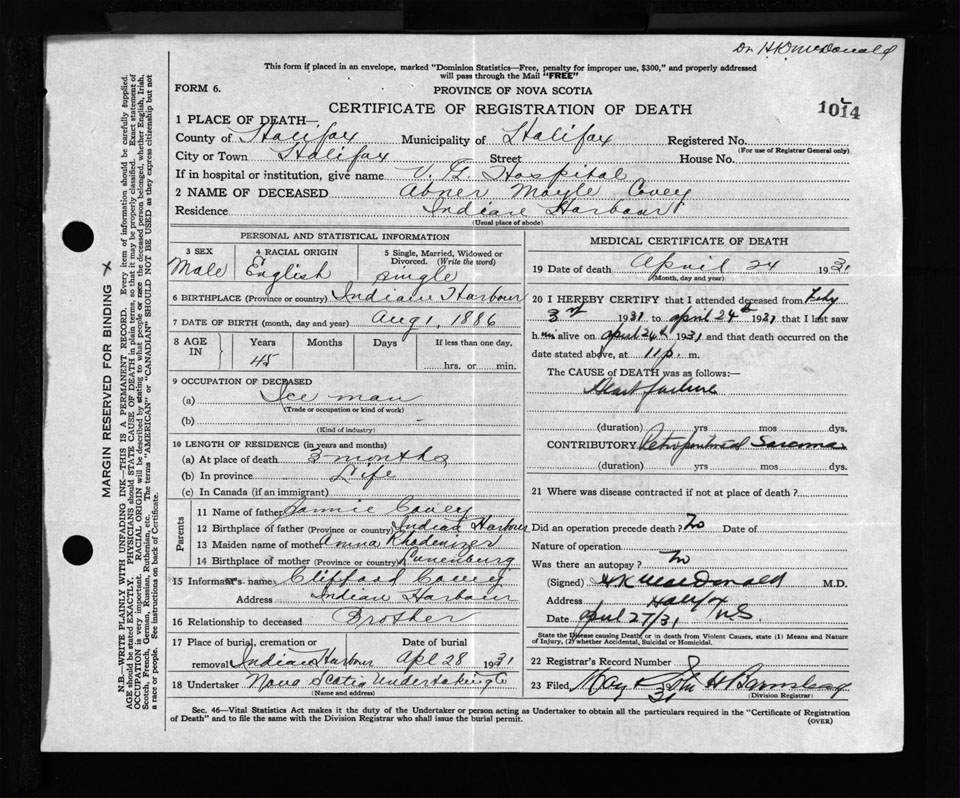 Dr. H.K. McDonald
This form if placed in an envelope, marked "Dominion Statistics—Free, penalty for improper use, $300," and properly addressed
will pass through the Mail "FREE"
FORM 6.
PROVINCE OF NOVA SCOTIA
CERTIFICATE OF REGISTRATION OF DEATH
1014
1 PLACE OF DEATH—
County of Halifax Municipality of Halifax Registered No.
(For use of Registrar General only)
City or Town Halifax Street House No.
If in hospital or institution, give name V. G. Hospital
2 NAME OF DECEASED Abner Moyle Covey
Residence Indian Harbour
(Usual place of abode)
PERSONAL AND STATISTICAL INFORMATION
3 SEX
Male
4 RACIAL ORIGIN
English
5 Single, Married, Widowed or
Divorced. (Write the word)
single
6 BIRTHPLACE (Province or country) Indian Harbour
7 DATE OF BIRTH (month, day and year) Aug 1, 1886
8 AGE IN
Years Months Days If less than one day.
45 hrs. or min.
9 OCCUPATION OF DECEASED
(a) Ice man
(Trade or occupation or kind of work)
(b) -
(Kind of industry)
10 LENGTH OF RESIDENCE (in years and months)
(a) At place of death 3 months
(b) In province Life
(c) In Canada (if an immigrant)
Parents
11 Name of father Covey
12 Birthplace of father (Province or country) Indian Harbour
13 Maiden name of mother Anna Rhodenizer
14 Birthplace of mother (Province or country) Lunenburg
15 Informant's name Clifford Covey
Address Indian Harbour
16 Relationship to deceased Brother
17 Place of burial, cremation or Date of burial
removal Indian Harbour Apl 28 1931
18 Undertaker Nova Scotia Undertaking Co
(Name and address)
MEDICAL CERTIFICATE OF DEATH
19 Date of death April 24 1931
(Month, day and year)
20 I HEREBY CERTIFY that I attended deceased from Feby
3rd 1931 to april 24th 1931 that I last saw
h im alive on april 24th 1931 and that death occurred on the
date stated above, at 11 p. m.
The CAUSE OF DEATH was as follows:—
Heart failure
(duration) yrs mos dys.
CONTRIBUTORY Retroperitoneal Sarcoma
(duration) yrs mos dys.
21 Where was disease contracted if not at place of death?
Did an operation precede death? No Date of
Nature of operation
Was there an autopsy? No
(Signed) H K MacDonald M.D.
Address Halifax
Date April 27/31 N.S.
State the Disease causing Death, or in death from Violent Causes, state (1) Means and Nature
of Injury, (2) whether Accidental, Suicidal or Homicidal.
22 Registrar's Record Number 8
23 Filed, May 31 John H Barnstead
(Division Registrar)
Sec. 46—Vital Statistics Act makes it the duty of the Undertaker or person acting as Undertaker to obtain all the particulars required in the "Certificate of Registration
of Death" and to file the same with the Division Registrar who shall issue the burial permit.
(OVER)
MARGIN RESERVED FOR BINDING
N.B.—WRITE PLAINLY WITH UNFADING INK—THIS IS A PERMANENT RECORD. Every item of information should be carefully supplied.
AGE should be stated EXACTLY. PHYSICIANS should STATE CAUSE OF DEATH in plain terms, so that it may be properly classified. Exact statement of
OCCUPATION is very important. RACIAL ORIGIN will be described by stating to what people or race the deceased person belonged, whether English, Irish,
Scotch, French, German, Russian, Ruthenian, etc. The terms "AMERICAN" or "CANADIAN" SHOULD NOT BE USED as they express citizenship but not
a race or people. See instructions on back of Certificate.